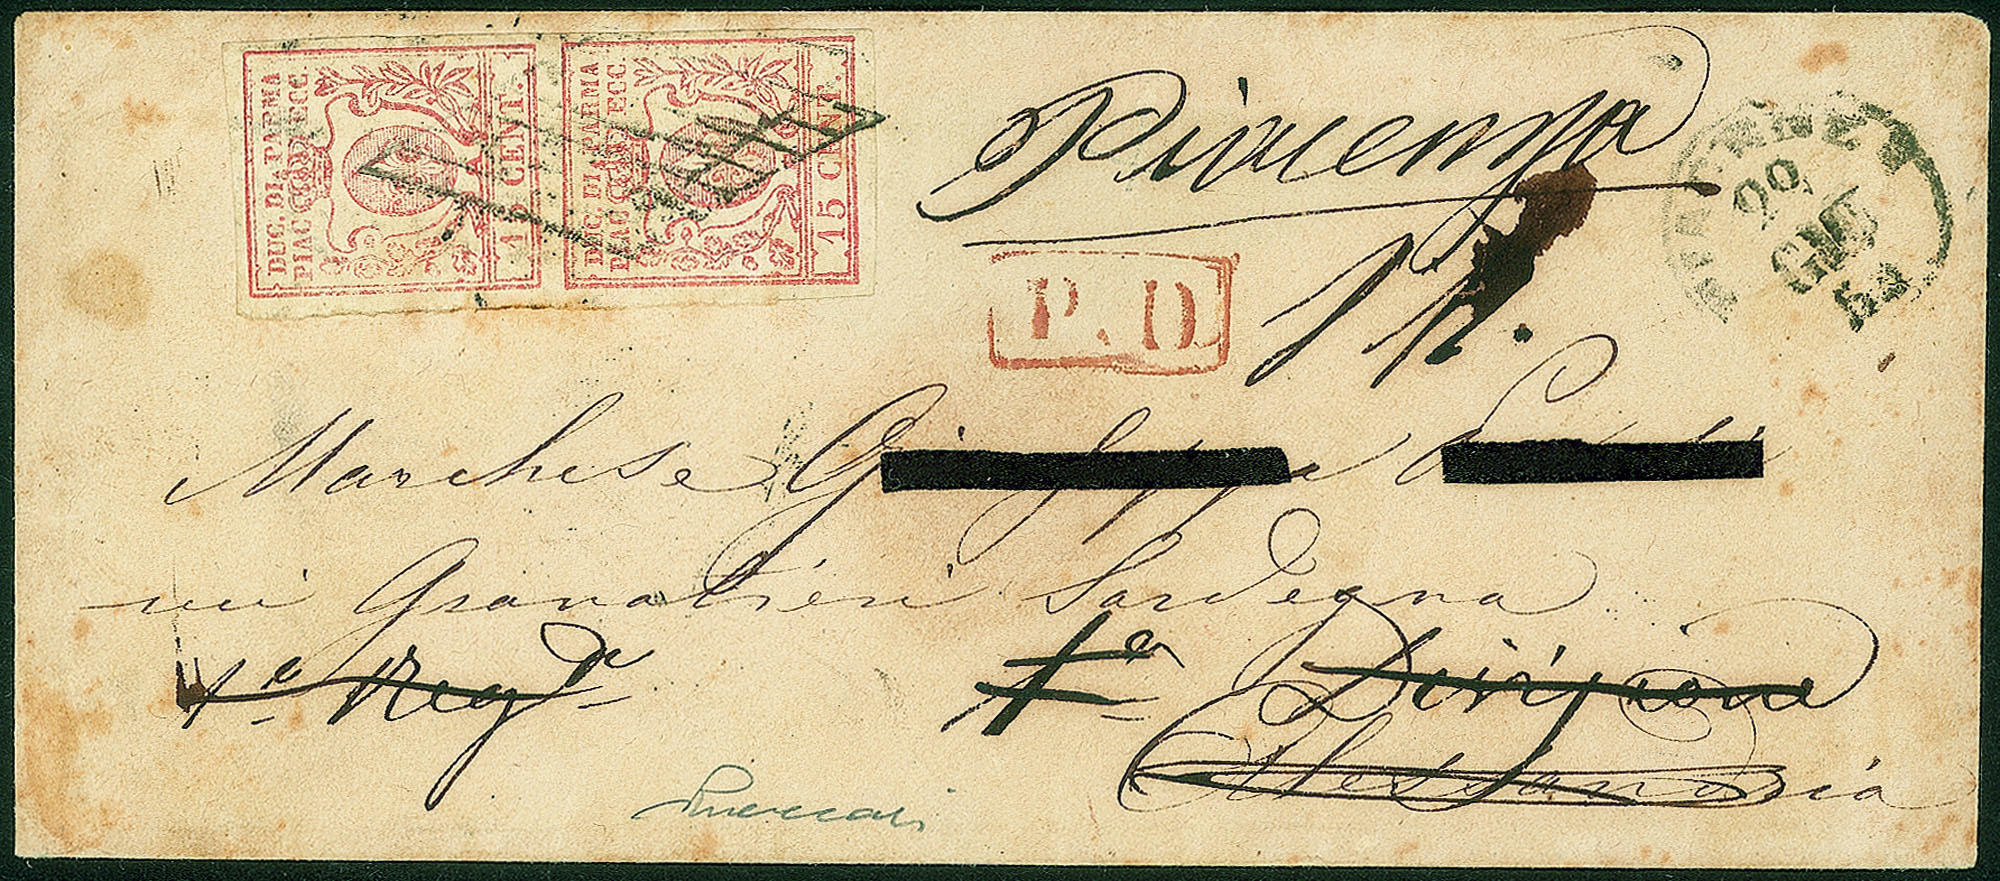 DUC. DI PARMA
PIAC. ECC.
15 CENT.
DUC. DI PARMA
PIAC. ECC.
15 CENT.
Piacenza
P.D.
22
GIU
59
Marchese
nei Granatieri Sardegna
1º Regto 1a Divisione
Alessandria